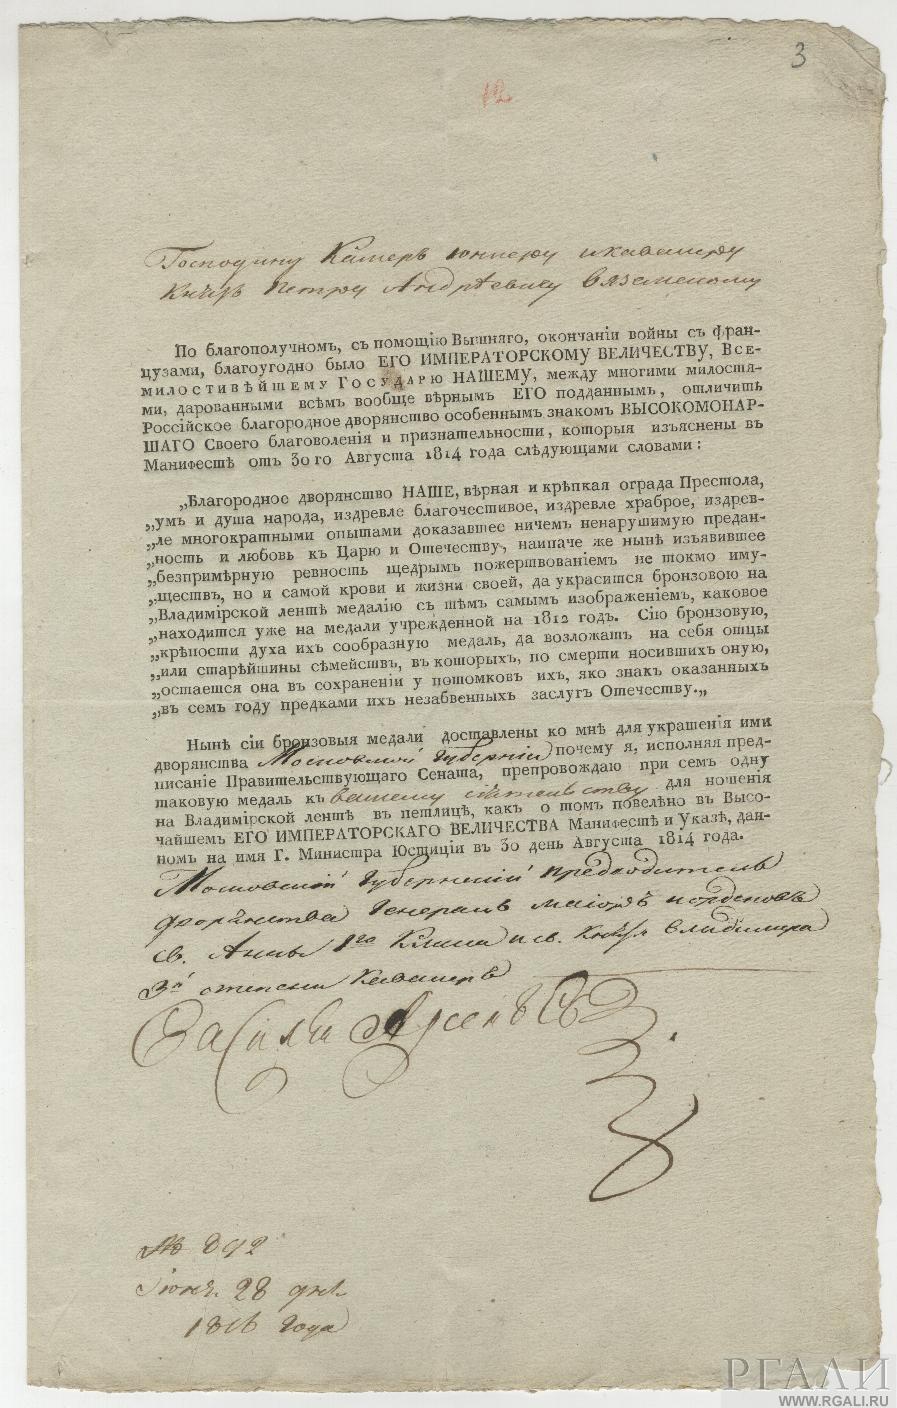 3
12
Господину Камеръ юнкеру и кавалеру
Князю Петру Андрѣевичу Вяземскому
По благополучномъ, съ помощію Вышняго, окончаніи войны съ Фран-
цузами, благоугодно было ЕГО ИМПЕРАТОРСКОМУ ВЕЛИЧЕСТВУ, Все-
милостивѣйшему Государю НАШЕМУ, между многими милостя-
ми, дарованными всѣмъ вообще вѣрнымъ ЕГО подданнымъ, отличить
Россійское благородное дворянство особеннымъ знакомъ ВЫСОКОМОНАР-
ШАГО Своего благоволенія и признательности, которыя изъяснены въ
Манифестѣ отъ 30 го Августа 1814 года слѣдующими словами:
„Благородное дворянство НАШЕ, вѣрная и крѣпкая ограда Престола,
„умъ и душа народа, издревле благочестивое, издревле храброе, издрев-
„ле многократными опытами доказавшее ничемъ ненарушимую предан-
„ность и любовь къ Царю и Отечеству, наипаче же нынѣ изъявившее
„безпримѣрную ревность щедрымъ пожертвованіемъ не токмо иму-
„ществъ, но и самой крови и жизни своей, да украсится бронзовою на
„Владимірской лентѣ медалію съ тѣмъ самымъ изображеніемъ, каковое
„находится уже на медали учрежденной на 1812 годъ. Сію бронзовую,
„крѣпости духа ихъ сообразную медаль, да возложатъ на себя отцы
„или старѣйшины сѣмействъ, въ которыхъ, по смерти носившихъ оную,
„остается она въ сохраненіи у потомковъ ихъ, яко знакъ оказанныхъ
„въ семъ году предками ихъ незабвенныхъ заслугъ Отечеству.„
Нынѣ сіи бронзовыя медали доставлены ко мнѣ для украшенія ими
дворянства Московской Губерніи почему я, исполняя пред-
писаніе Правительствующаго Сената, препровождаю при семъ одну
таковую медаль къ вашему сіятельству для ношенія
на Владимірской лентѣ въ петлицѣ, какъ о томъ повелѣно въ Высо-
чайшемъ ЕГО ИМПЕРАТОРСКАГО ВЕЛИЧЕСТВА Манифестѣ и Указѣ, дан-
номъ на имя Г. Министра Юстиціи въ 30 день Августа 1814 года.
Московскій Губернскій предводитель
дворянства Генералъ маіоръ и орденовъ
св. Анны 1го Класса и св. Князя Владимира
3й степени Кавалеръ
Василій Арсеньевъ
№ 892
Іюня 28 дня
1816 года
РГАЛИ
WWW.RGALI.RU